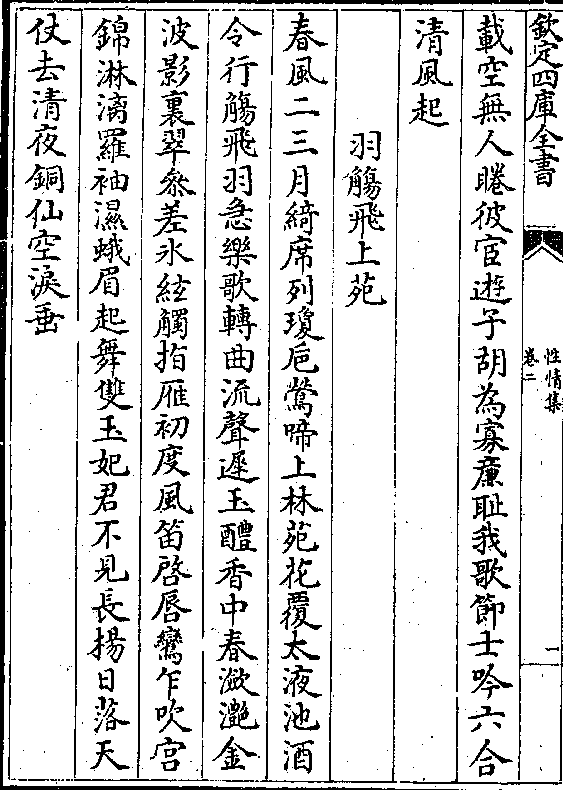 欽定四庫全書
性情集
卷二
一
載空無人睠彼宦遊子胡為寡廉耻我歌節士吟六合
清風起
羽觴飛上苑
春風二三月綺席列瓊巵鶯啼上林苑花覆太液池酒
令行觴飛羽急樂歌轉曲流聲遲玉醴香中春瀲灧金
波影裏翠叅差氷絃觸指雁初度風笛啓唇鸞乍吹宫
錦淋漓羅袖濕蛾眉起舞雙玉妃君不見長揚日落天
仗去清夜銅仙空淚垂